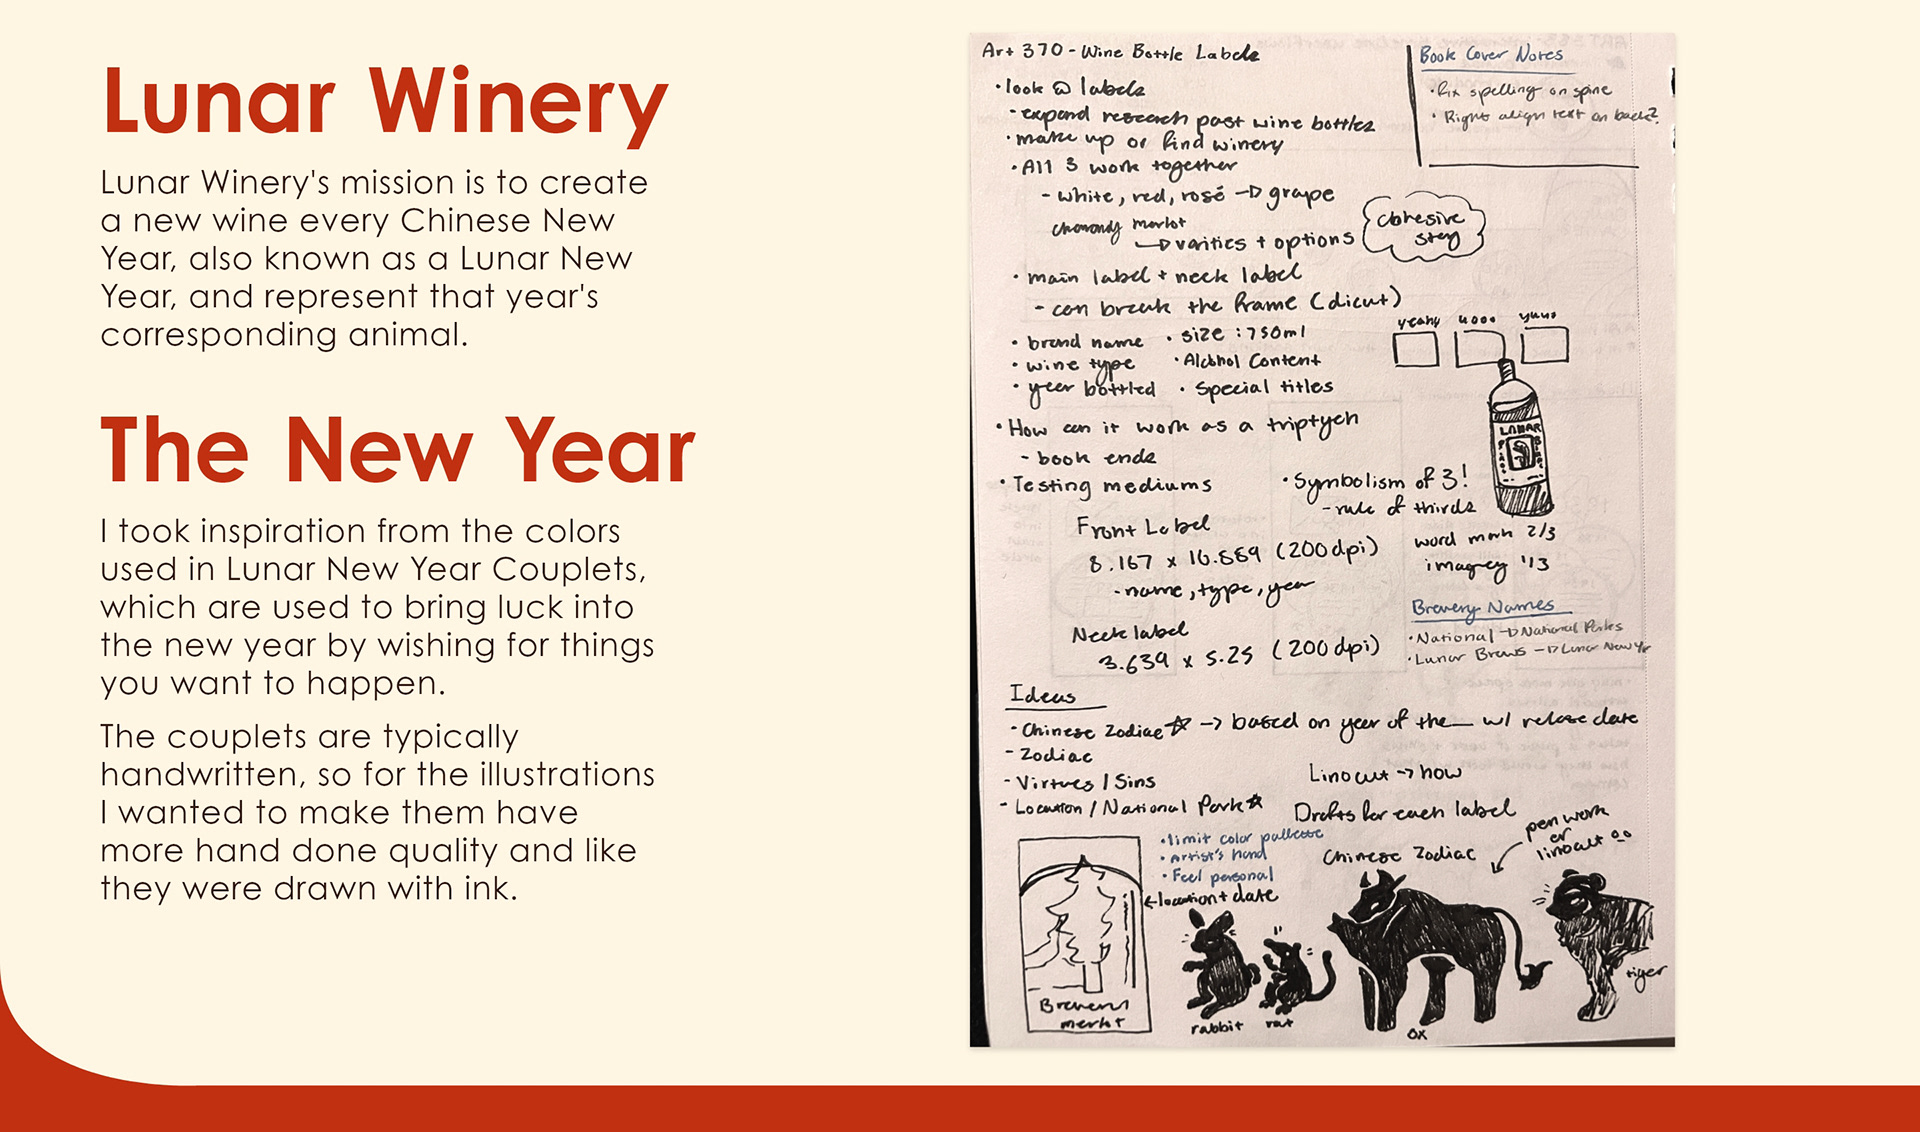 Lunar Winery
Lunar Winery's mission is to create
a new wine every Chinese New
Year, also known as a Lunar New
Year, and represent that year's
corresponding animal.
The New Year
I took inspiration from the colors
used in Lunar New Year Couplets,
which are used to bring luck into
the new year by wishing for things
you want to happen.
The couplets are typically
handwritten, so for the illustrations
I wanted to make them have
more hand done quality and like
they were drawn with ink.
Art 370 - Wine Bottle Labels
• look @ labels
- expand research past wine bottles
• make up or find winery
• All 3 work together
- white, red, rosé → grape
merlot
→ varities + options
cohesive
story
• main label + neck label
- can break the frame (dicut)
• brand name
• wine type
• year bottled
• size : 750ml
• Alcohol Content
• Special titles
• How can it work as a triptych
- book ends
• Testing mediums
• Symbolism of 3!
- rule of thirds
Front Label
8.167 x 10.889 (200 dpi)
- name, type, year
Neck label
3.639 x 5.25 (200 dpi)
Book Cover Notes
• Fix spelling on spine
• Right align text on back?
LUNAR
word mark 2/3
imagrey 1/3
Brewery Names
• National → National Parks
• Lunar Brews → Lunar New Yr
Ideas
- Chinese Zodiac ☆ → based on year of the __ w/ release date
- Zodiac
- Virtues / Sins
- Location / National Park ☆
Linocut → how
Drafts for each label
• limit color pallette
• Artist's hand
• Feel personal
← location + date
Chinese Zodiac
pen work
or
linocut
merlot
rabbit
rat
ox
tiger